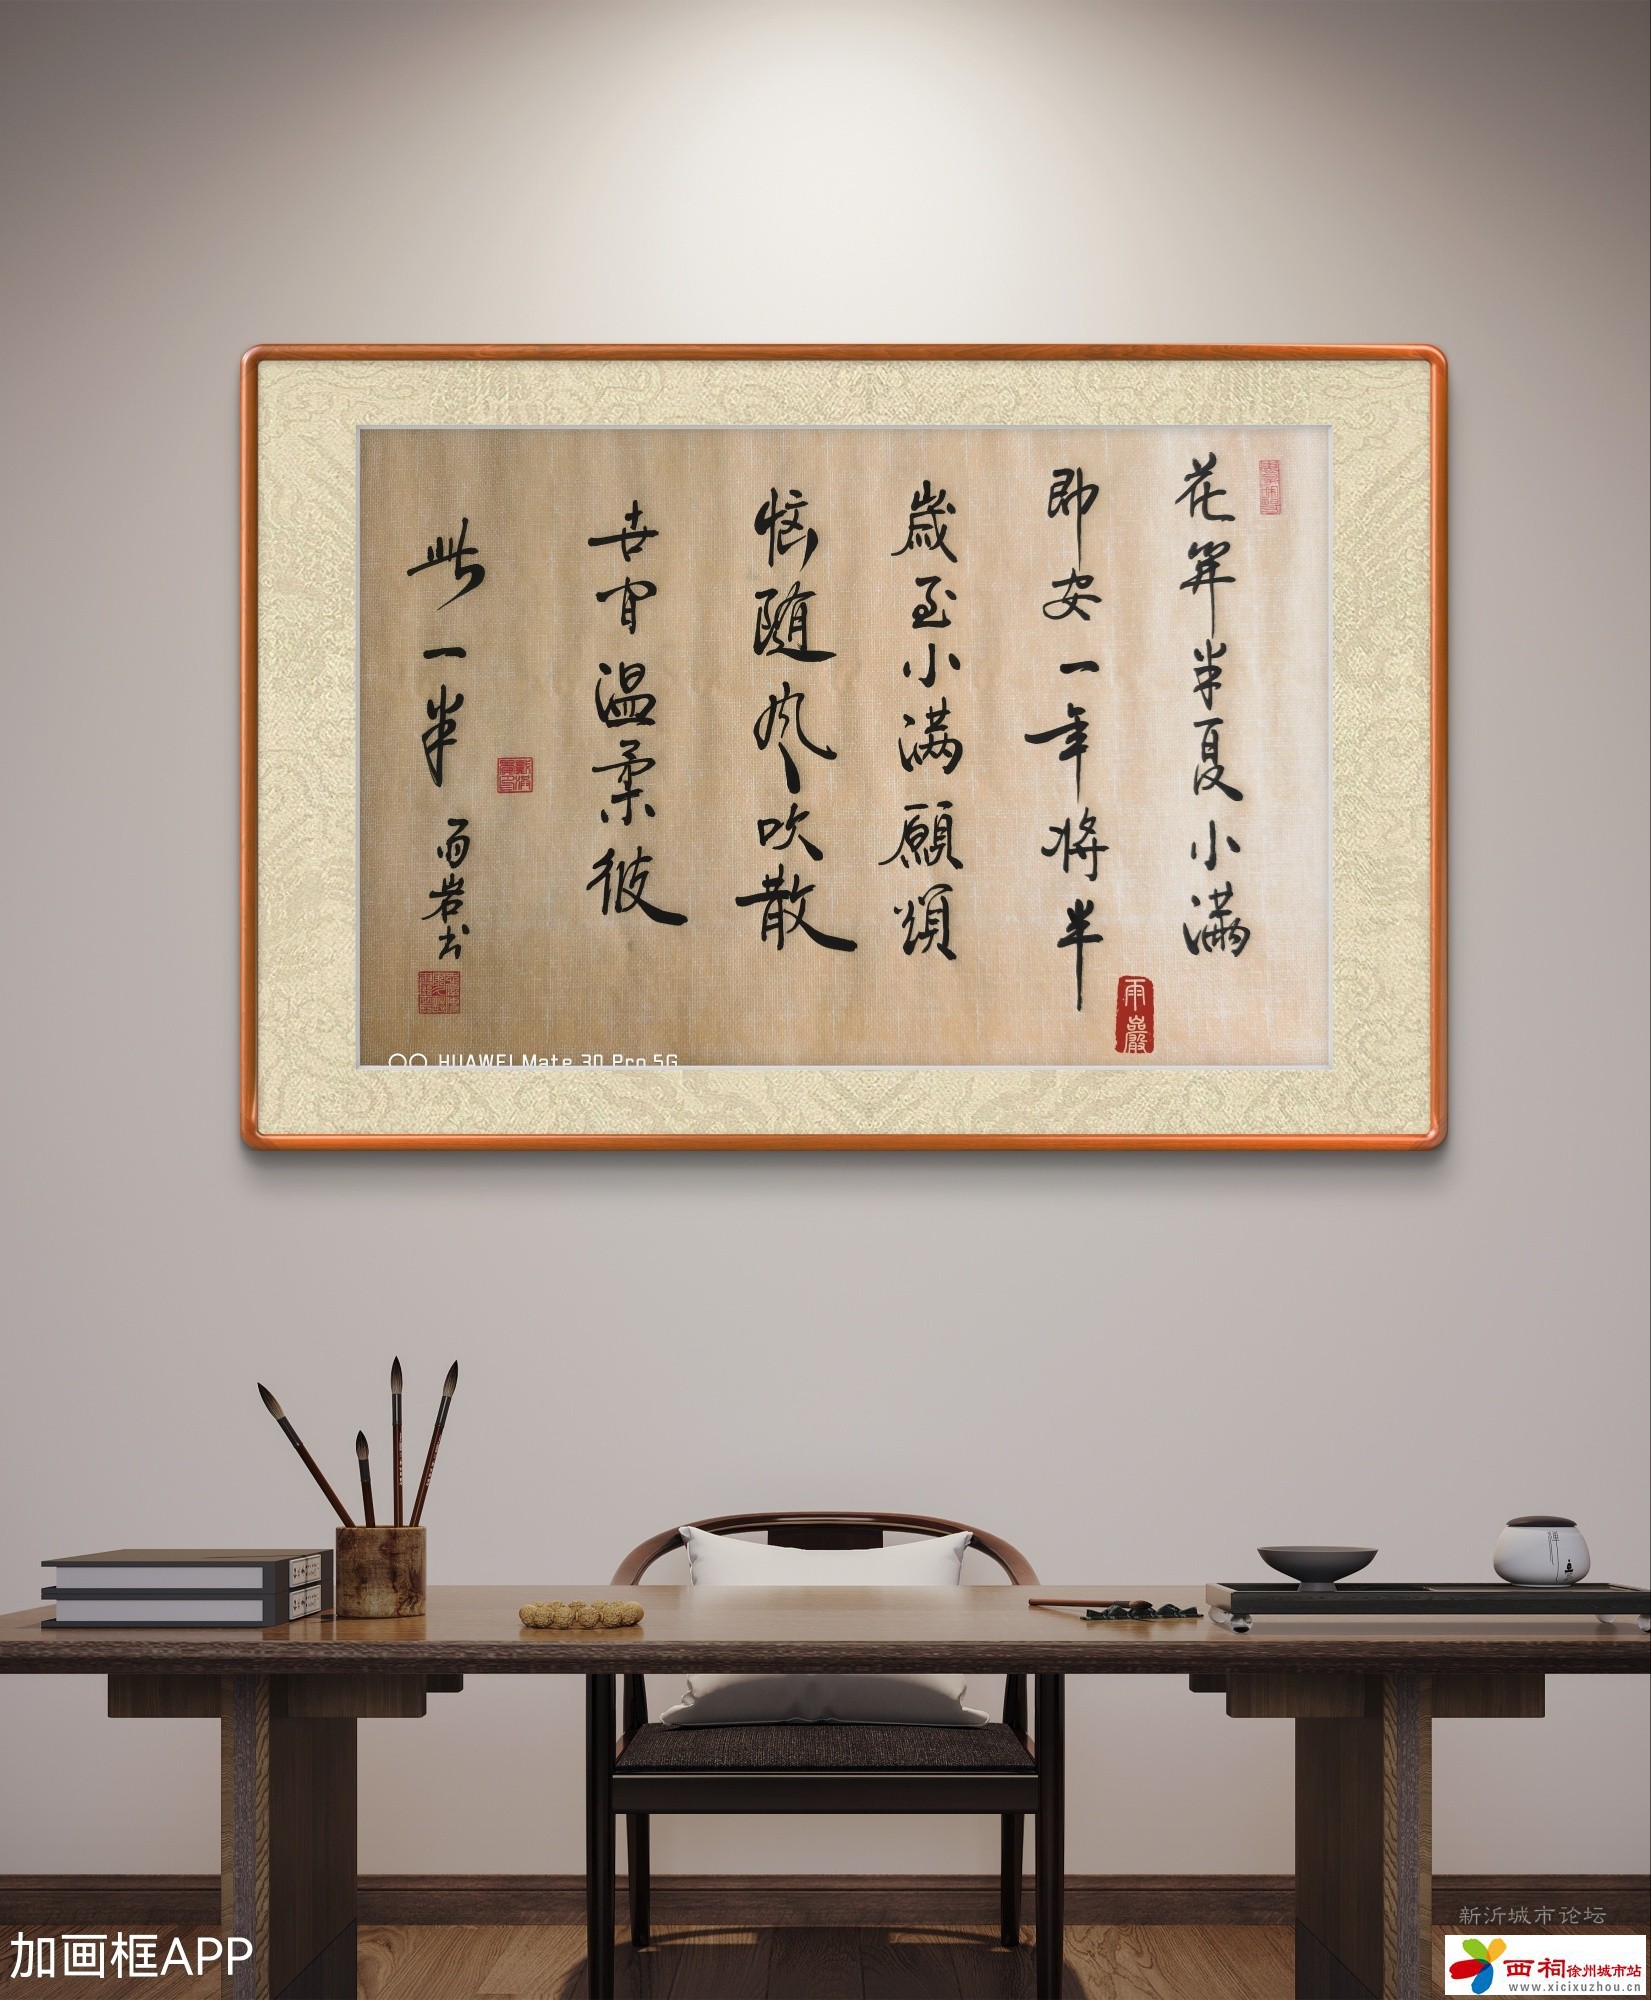 花开半夏小满
即安一年将半
歳至小满願煩
恼随风吹散
世间温柔彼
此一半
雨岩书
雨巖
HUAWEI Mate 30 Pro 5G
禅
加画框APP
新沂城市论坛
西祠徐州城市站
www.xicixuzhou.cn